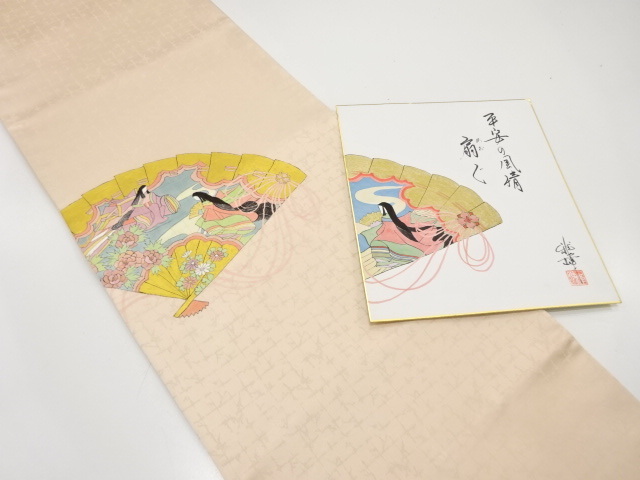 平安の風情
扇ぐ